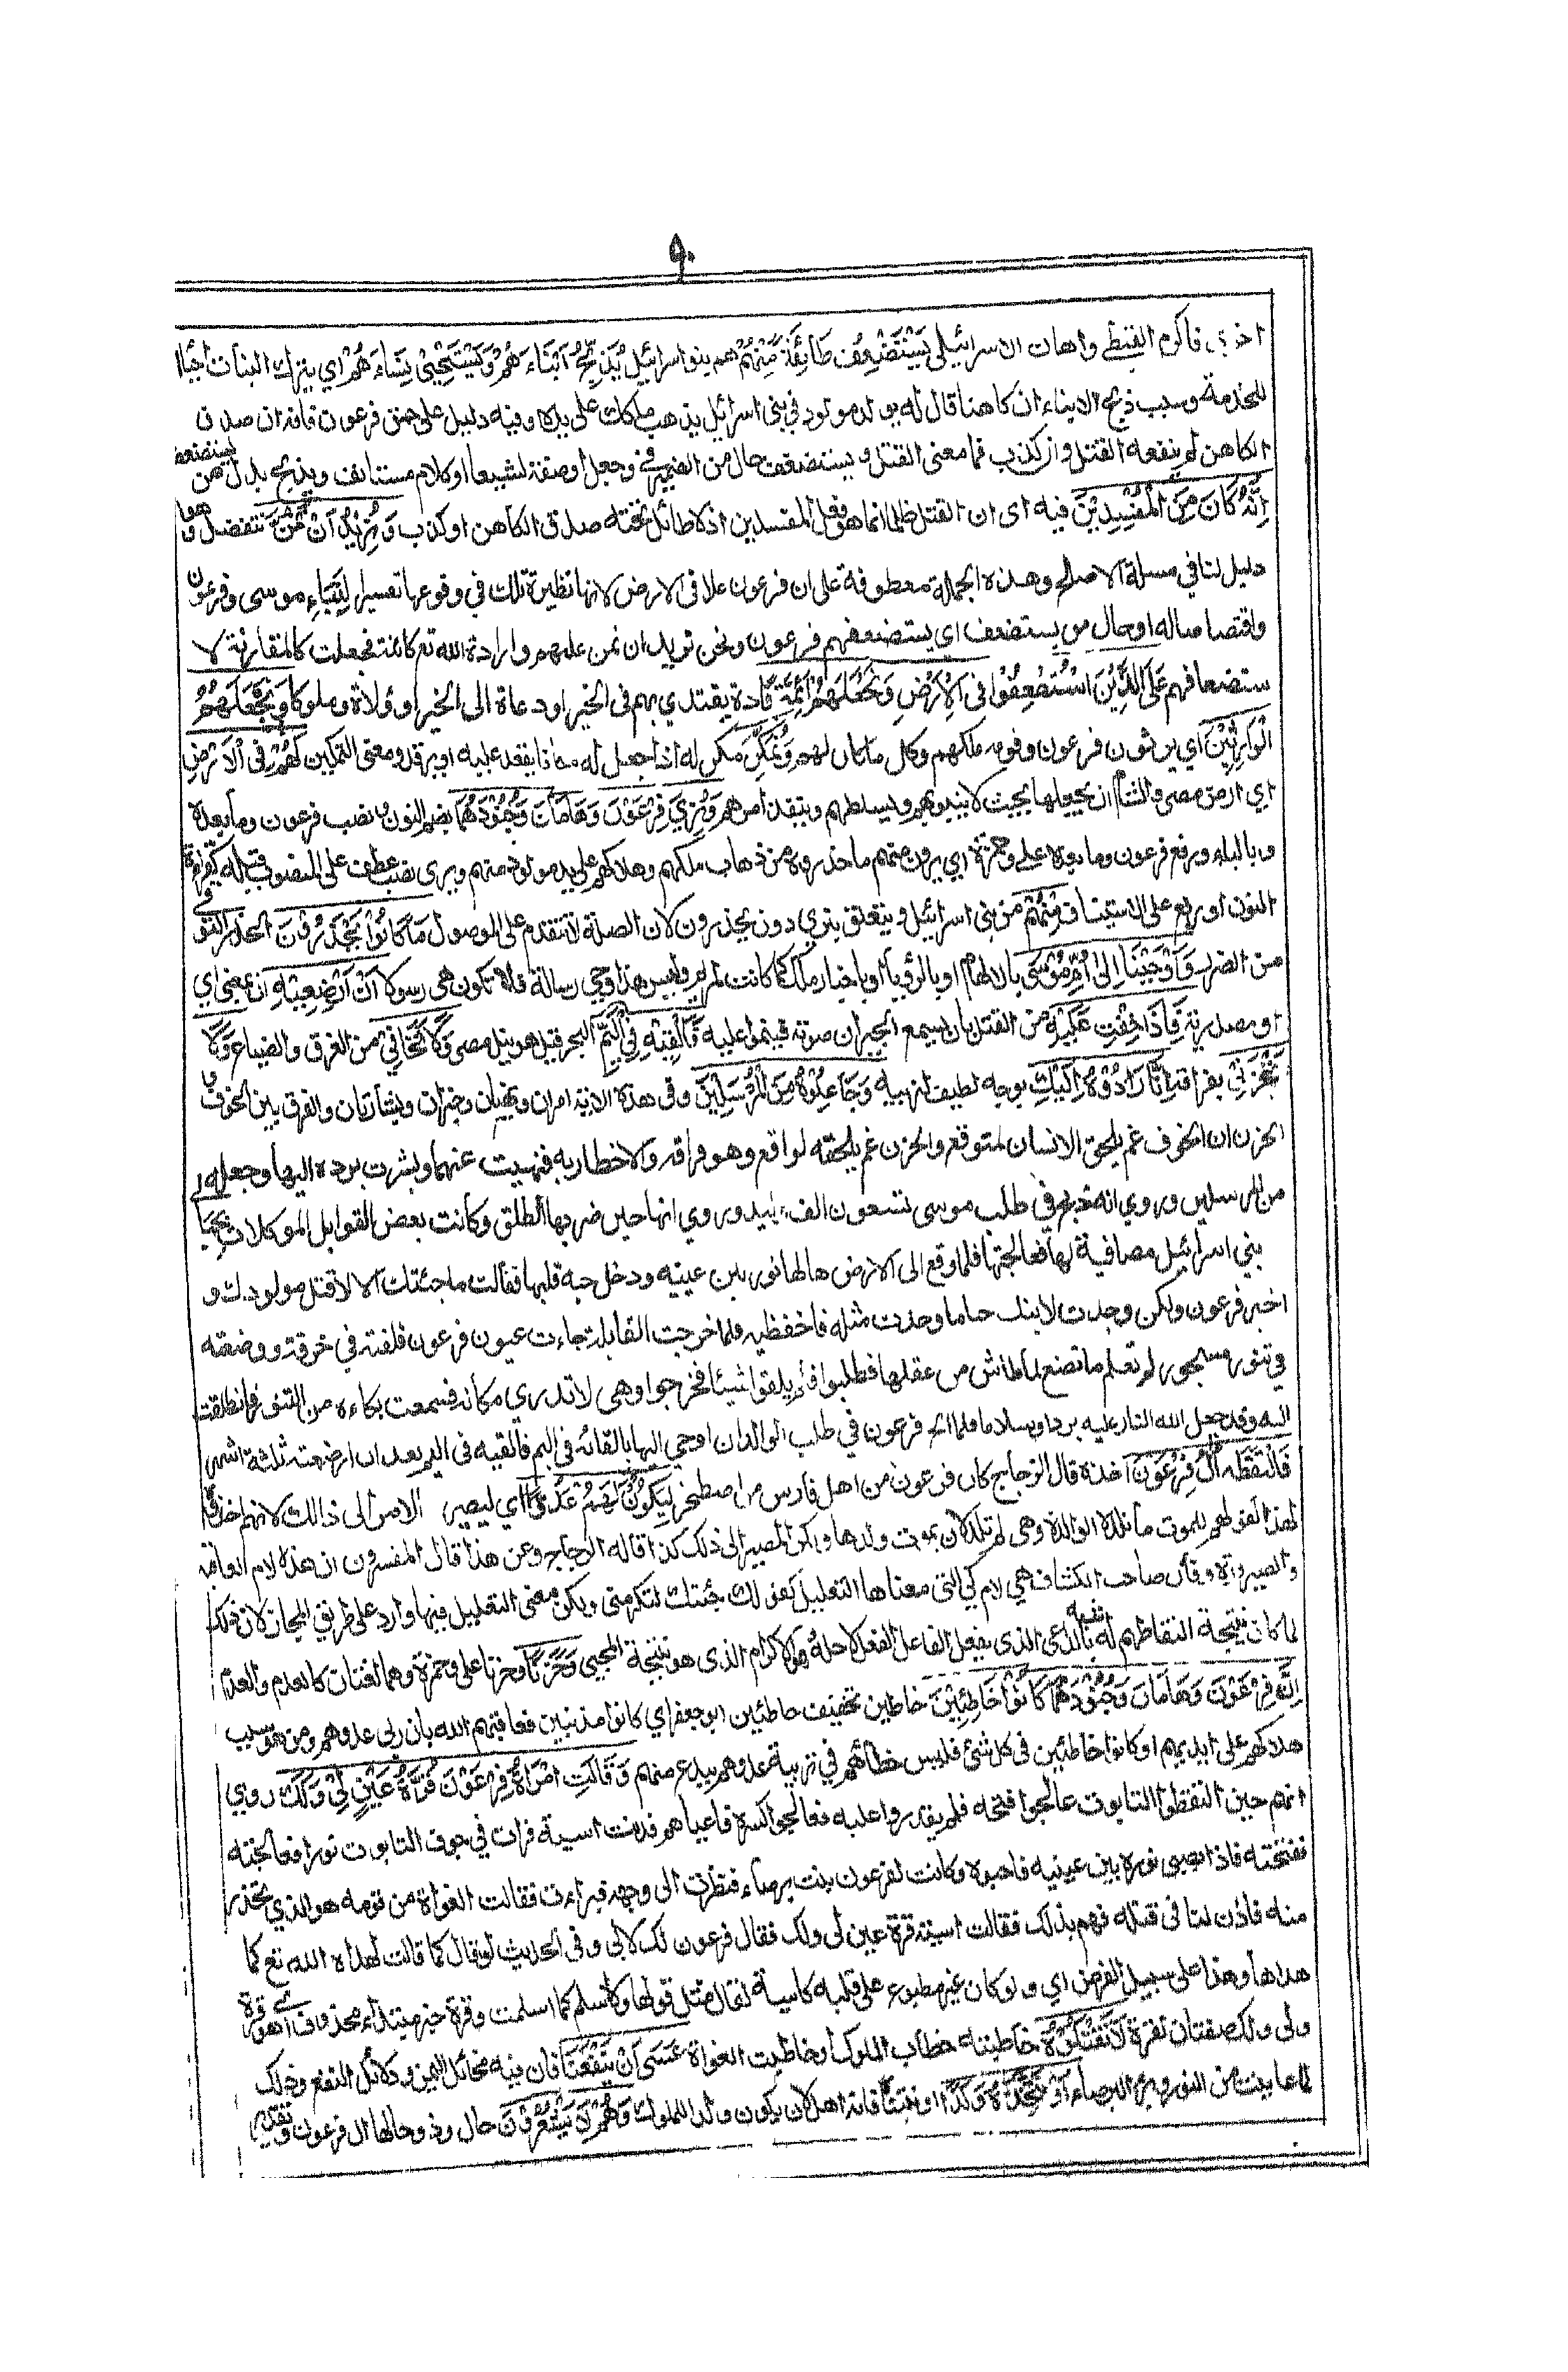 ٩٠
اخرى فاكرم القبطي واهان الاسرائيلي يَسْتَضْعِفُ طَائِفَةً مِّنْهُمْ هم بنو اسرائيل يُذَبِّحُ اَبْنَاءَهُمْ وَيَسْتَحْيِيْ نِسَاءَهُمْ اي يترك البنات احياء
للخدمة وسبب ذبح الابناء ان كاهنا قال له يولد مولود في بني اسرائيل يذهب ملكك على يده وفيه دليل على حمق فرعون فانه ان صدق
الكاهن لم ينفعه القتل وان كذب فما معنى القتل و يستضعف حال من الضمير في وجعل او صفة لشيعا او كلام مستانف ويذبح بدل من يستضعف
اِنَّهُ كَانَ مِنَ الْمُفْسِدِيْنَ فيه اى ان القتل ظلما انما هو فعل المفسدين اذ لا طائل تحته صدق الكاهن او كذب وَنُرِيْدُ اَنْ نَّمُنَّ نتفضل وهو
دليل لنا في مسئلة الاصلح وهذه الجملة معطوفة على ان فرعون علا فى الارض لانها نظيرة تلك في وقوعها تفسيرا لِنَبَاءِ موسى وفرعون
واقتصاصا له او حال من يستضعف اي يستضعفهم فرعون ونحن نريد ان نمن عليهم وارادة الله تع كائنة فجعلت كالمقارنة لا
ستضعافهم عَلَى الَّذِيْنَ اسْتُضْعِفُوْا فِى الْاَرْضِ وَنَجْعَلَهُمْ اَئِمَّةً قادة يقتدي بهم في الخير او دعاة الى الخير او ولاة وملوكا وَّنَجْعَلَهُمُ
الْوَارِثِيْنَ اي يرثون فرعون وقومه ملكهم وكل ما كان لهم وَنُمَكِّنَ مكن له اذا جعل له مكانا يقعد عليه او يرقد ومعنى التمكين لَهُمْ فِى الْاَرْضِ
اي ارض مصر والشام ان يجعلها بحيث لا ينبو بهم ويسلطهم وينفذ امرهم وَنُرِيَ فِرْعَوْنَ وَهَامَانَ وَجُنُوْدَهُمَا بضم النون ونصب فرعون وما بعده
وبالياء ورفع فرعون وما بعده علي وحمزة اي يرون منهم ما حذروه من ذهاب ملكهم وهلاكهم على يد مولود منهم ويرى نصب عطف على المنصوب قبله كقراءة
النون او رفع على الاستيناف مِنْهُمْ من بني اسرائيل ويتعلق بنري دون يحذرون لان الصلة لا تتقدم على الموصول مَا كَانُوْا يَحْذَرُوْنَ الحذر التوقي
من الضرر وَاَوْحَيْنَا اِلٰى اُمِّ مُوْسٰى بالالهام او بالرؤيا او باخبار ملك كما كانت لمريم وليس هذا وحي رسالة فلا تكون هي رسولا اَنْ اَرْضِعِيْهِ ان بمعنى اي
او مصدرية فَاِذَا خِفْتِ عَلَيْهِ من القتل بان يسمع الجيران صوته فينموا عليه فَاَلْقِيْهِ فِى الْيَمِّ البحر قيل هو نيل مصر وَلَا تَخَافِيْ من الغرق والضياع وَلَا
تَحْزَنِيْ بفراقه اِنَّا رَادُّوْهُ اِلَيْكِ بوجه لطيف لتربيه وَجَاعِلُوْهُ مِنَ الْمُرْسَلِيْنَ وفي هذه الاية امران ونهيان وخبران وبشارتان والفرق بين الخوف و
الحزن ان الخوف غم يلحق الانسان لمتوقع والحزن غم يلحقه لواقع وهو فراقه والاخطار به فنهيت عنهما وبشرت برده اليها وجعله
من المرسلين وروي انه ذبح في طلب موسى تسعون الف وليد وروي انها حين ضربها الطلق وكانت بعض القوابل الموكلات بحبالى
بني اسرائيل مصافية لها فعالجتها فلما وقع الى الارض هالها نور بين عينيه ودخل حبه قلبها فقالت ما جئتك الا لاقتل مولودك و
اخبر فرعون ولكن وجدت لابنك حبا ما وجدت مثله فاحفظيه فلما خرجت القابلة جاءت عيون فرعون فلفته في خرقة ووضعته
في تنور مسجور لم تعلم ما تصنع لما طاش من عقلها فطلبوا فلم يلقوا شيئا فخرجوا وهي لا تدري مكانه فسمعت بكاءه من التنور فانطلقت
اليه وقد جعل الله النار عليه بردا وسلاما فلما الح فرعون في طلب الولدان اوحي اليها بالقائه في اليم فالقيه في اليم بعد ان ارضعته ثلثة اشهر
فَالْتَقَطَهٗ اٰلُ فِرْعَوْنَ اخذه قال الزجاج كان فرعون من اهل فارس من اصطخر لِيَكُوْنَ لَهُمْ عَدُوًّا اي ليصير الامر الى ذالك لا انهم اخذوه
لهذا كقولهم للموت ما تلد الوالدة وهى لم تلد لان يموت ولدها ولكن المصير الى ذلك كذا قاله الزجاج وعن هذا قال المفسرون ان هذه لام العاقبة
والصيرورة وقال صاحب الكشاف هي لام كي التي معناها التعليل كقولك جئتك لتكرمني ولكن معنى التعليل فيها وارد على طريق المجاز لان ذلك
لما كان نتيجة التقاطهم له شبه بالداعي الذي يفعل الفاعل الفعل لاجله وهو الاكرام الذي هو نتيجة المجيئ وَحَزَنًا وحزنا علي وحمزة وهما لغتان كالعدم والعدم
اِنَّ فِرْعَوْنَ وَهَامَانَ وَجُنُوْدَهُمَا كَانُوْا خَاطِئِيْنَ خاطين تخفيف خاطئين ابو جعفر اي كانوا مذنبين فعاقبهم الله بان ربى عدوهم ومن هو سبب
هلاكهم على ايديهم او كانوا خاطئين فى كل شئ فليس خطأهم في تربية عدوهم ببدع منهم وَقَالَتِ امْرَاَةُ فِرْعَوْنَ قُرَّةُ عَيْنٍ لِّيْ وَلَكَ روي
انهم حين التقطوا التابوت عالجوا فتحه فلم يقدروا عليه فعالجوا كسره فاعياهم فدنت اسية فرات في جوف التابوت نورا فعالجته
ففتحته فاذا بصبي نوره بين عينيه فاحبوه وكانت لفرعون بنت برصاء فنظرت الى وجهه فبراءت فقالت الغواة من قومه هو الذي نحذر
منه فاذن لنا في قتله فهم بذلك فقالت اسية قرة عين لي ولك فقال فرعون لك لا لي وفي الحديث لو قال كما قالت لهداه الله تع كما
هداها وهذا على سبيل الفرض اي ولو كان غير مطبوع على قلبه كاسية لقال مثل قولها ولاسلم كما اسلمت وقرة خبر مبتداء محذوف اي هو قرة
ولي ولك صفتان لقرة لَا تَقْتُلُوْهُ خاطبته خطاب الملوك او خاطبت الغواة عَسٰى اَنْ يَّنْفَعَنَا فان فيه مخائل اليمن ودلائل النفع وذلك
لما عاينت من النور وبرء البرصاء اَوْ نَتَّخِذَهٗ وَلَدًا او نتبناه فانه اهل لان يكون ولد الملوك وَهُمْ لَا يَشْعُرُوْنَ حال وذو حالها ال فرعون وتقدير